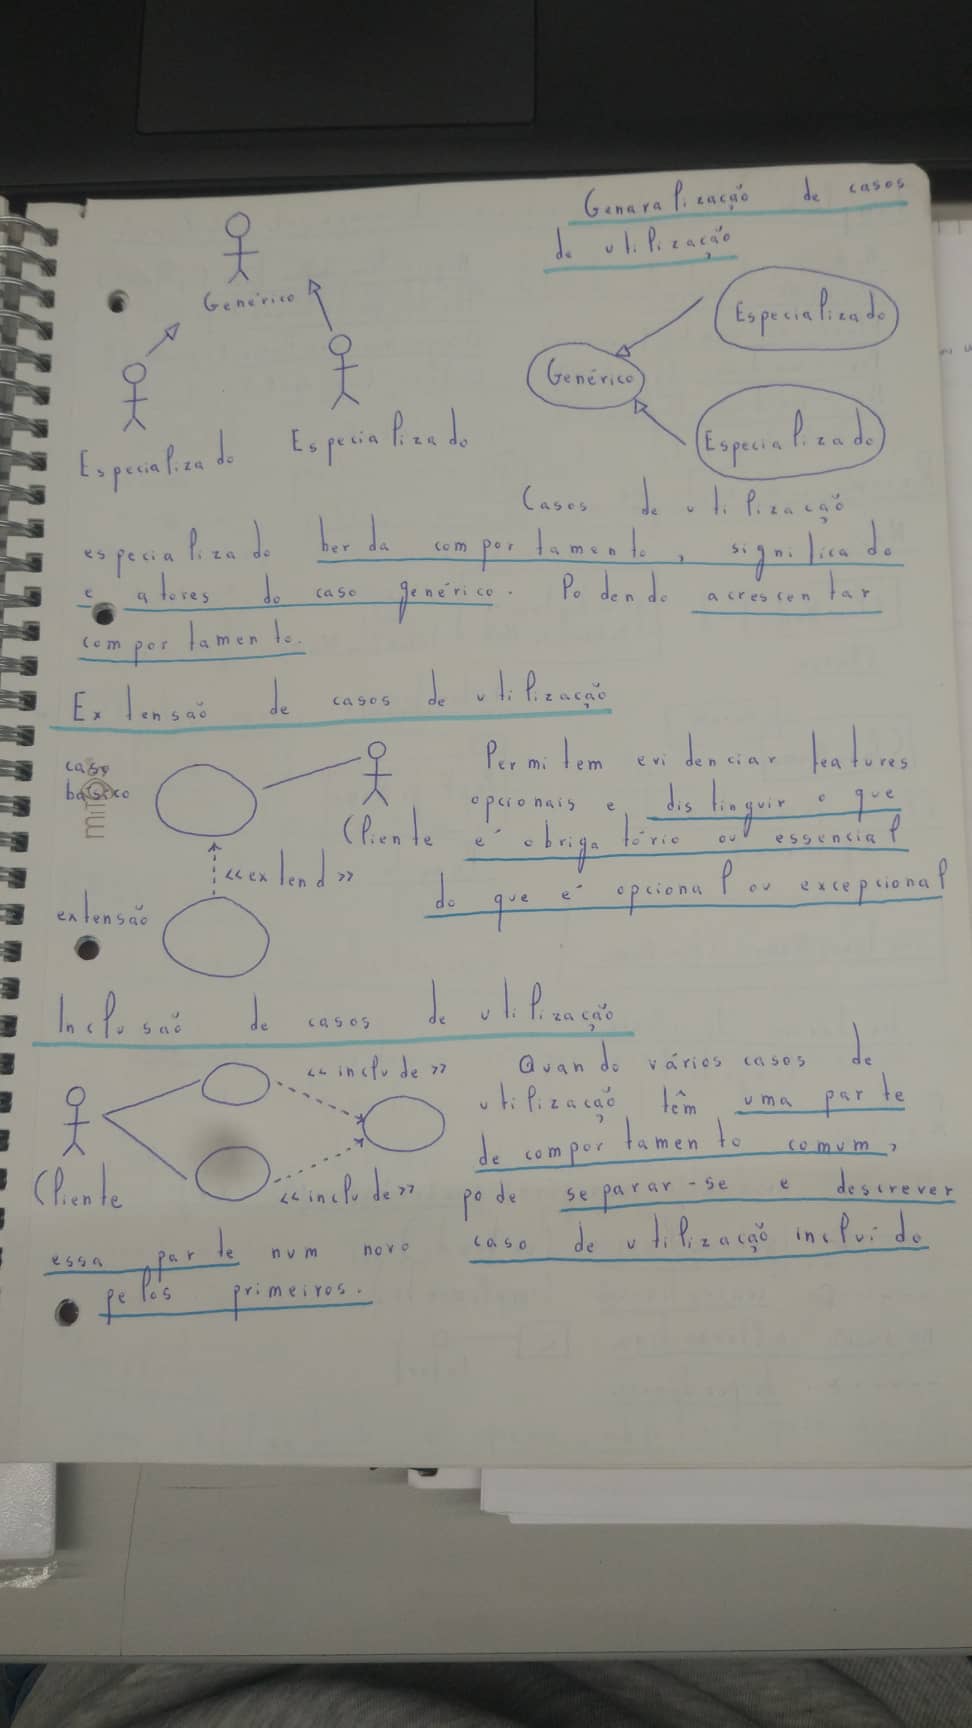 Genaralização de casos
de utilização
Genérico
Especializado
Especializado
Especializado
Genérico
Especializado
Casos de utilização
especializado herda comportamento, significado
e atores do caso genérico. Podendo acrescentar
comportamento.
Extensão de casos de utilização
caso
basico
Cliente
<<extend>>
extensão
Permitem evidenciar features
opcionais e distinguir o que
é obrigatório ou essencial
do que é opcional ou excepcional
Inclusão de casos de utilização
<<include>>
Cliente
<<include>>
Quando vários casos de
utilização têm uma parte
de comportamento comum,
pode separar-se e descrever
essa parte num novo caso de utilização incluído
pelos primeiros.